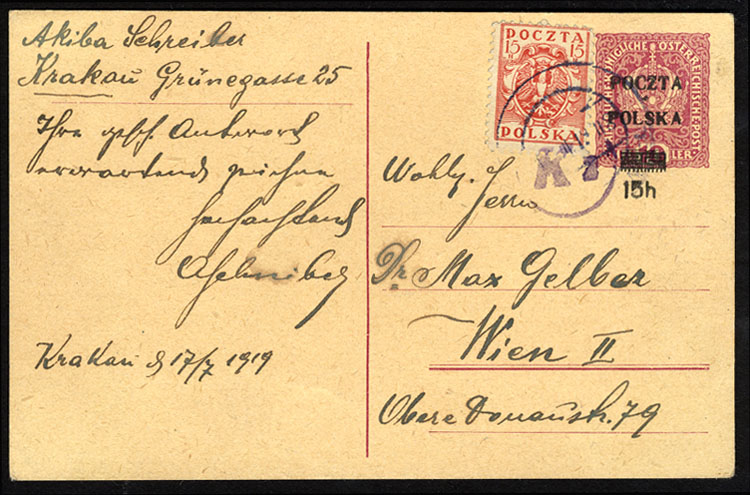 Akiba Schreiber
Krakau Grünegasse 25
Ihre gesch. Antwort
erwartend zeichne
hochachtend
ASchreiber
Krakau d 17/7 1919
POCZTA
15 15
POLSKA
KÖNIGLICHE ÖSTERREICHISCHE POST
POCZTA
POLSKA
15h
Wohlg. Herrn
Dr. Max Gelber
Wien II
Obere Donaustr. 79